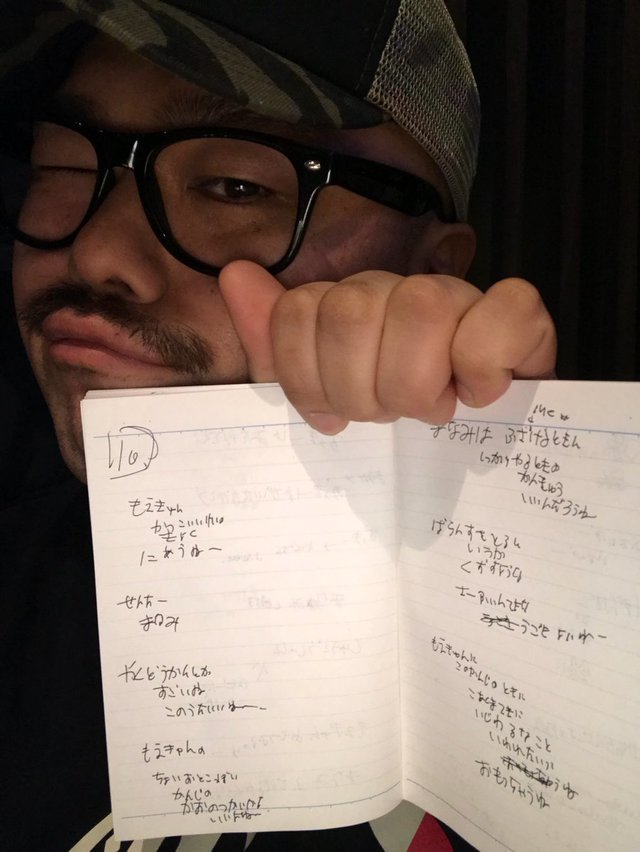 10
もえきゃん
かっこいいけい
にあうねー
せんたー
まなみ
やくどうかんとか
すごいね
このうたいいねー
もえきゃんの
ちょいおとこっぽい
かんじの
かおのつかいかた
いいよねー
まなみは ふざけるときも
MC
しっかりやるときの
かんきゅう
いいんだろうね
ばらんすをとるん
いうか
くずすような
さーふぃんてよな
うごきよいねー
もえきゃんに
このかんじのときに
こあくまてきに
いじわるなこと
いわれたいか
おもっちゃうね